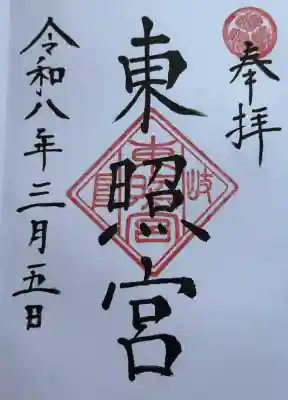 奉拝
東照宮
令和八年三月五日